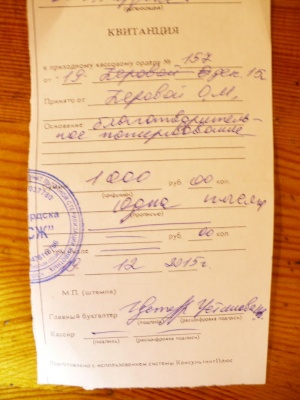 (организация)
КВИТАНЦИЯ
к приходному кассовому ордеру № 157
от " 19 дек. 15
Принято от Церовой О.М.
Основание благотворитель-
ное пожертвование
1000 руб. 00 коп.
(цифрами)
Одна тысяча
(прописью)
руб. 00 коп.
12 2015г.
М.П. (штампа)
Главный бухгалтер
(подпись) (расшифровка подписи)
Кассир
(подпись) (расшифровка подписи)
Подготовлено с использованием системы КонсультантПлюс